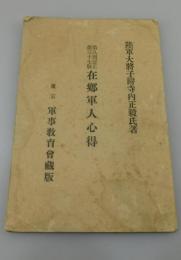 陸軍大將子爵寺内正毅氏著
在郷軍人心得
東京 軍事教育會藏版